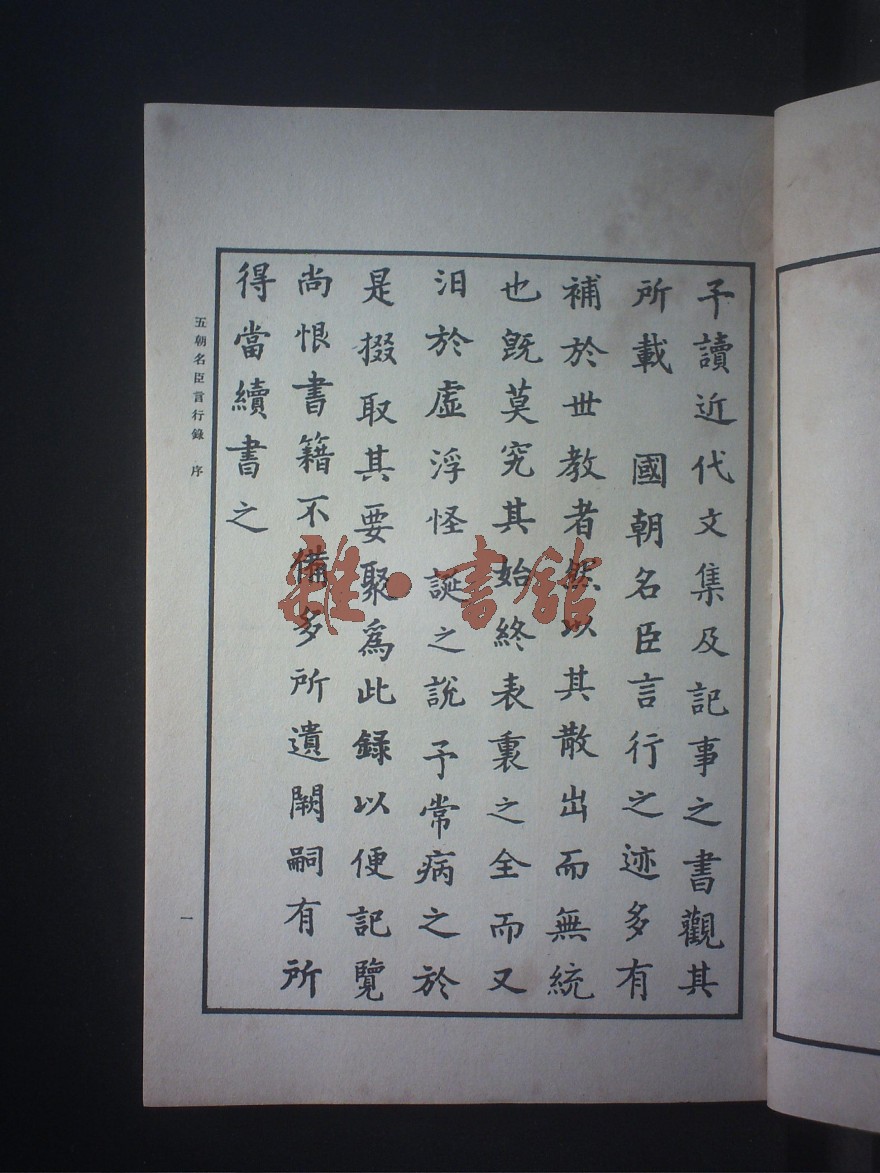 予讀近代文集及記事之書觀其
所載　國朝名臣言行之迹多有
補於世教者然以其散出而無統
也既莫究其始終表裏之全而又
汨於虛浮怪誕之說予常病之於
是掇取其要聚爲此録以便記覽
尚恨書籍不備多所遺闕嗣有所
得當續書之
五朝名臣言行錄　序
一
雜·書館